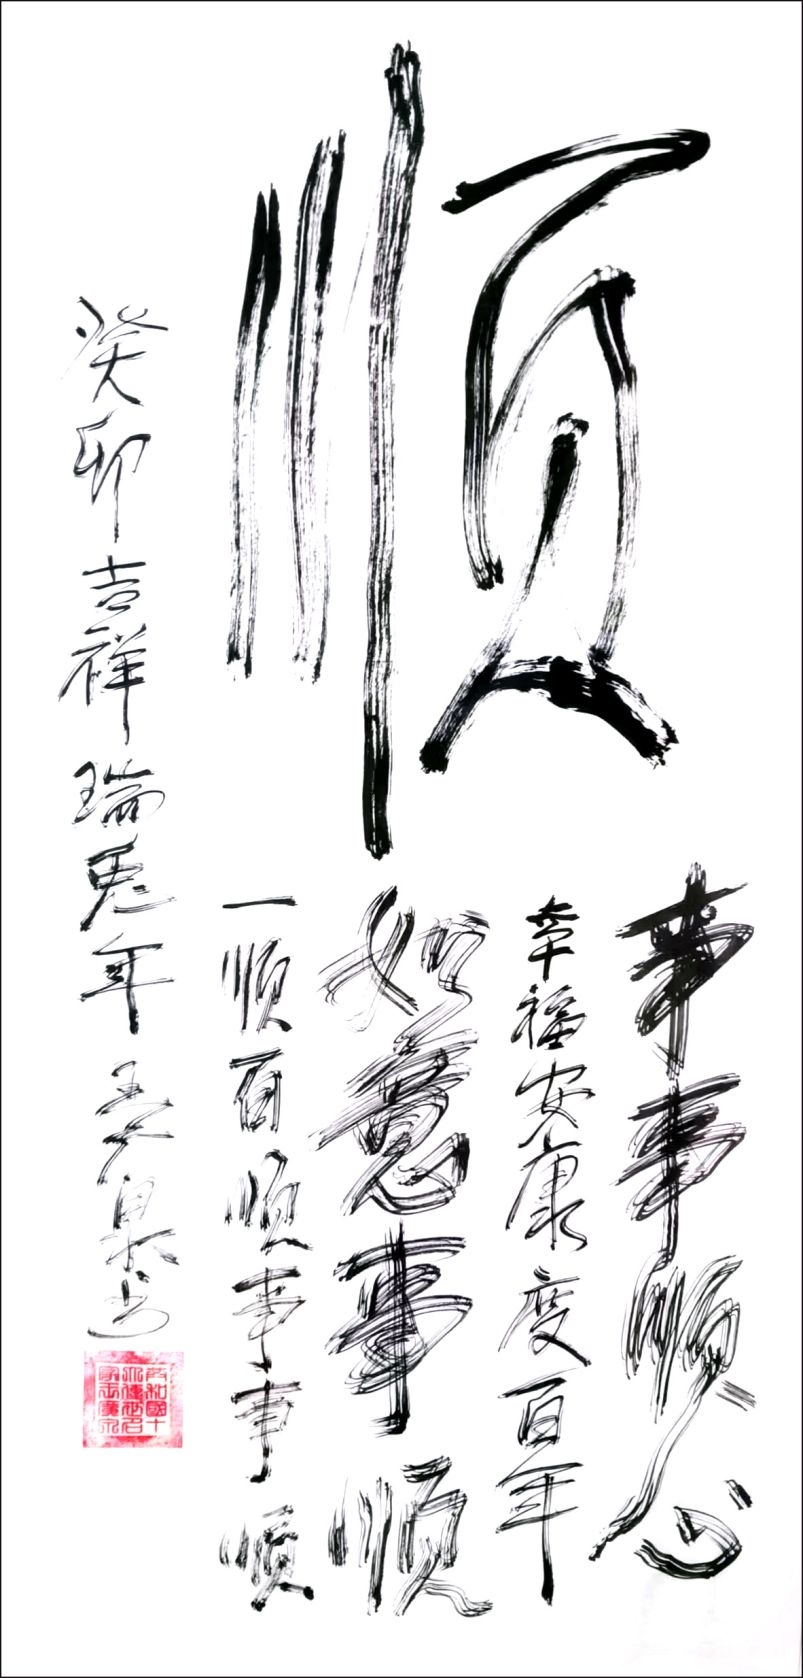 顺
事事顺心
幸福安康度百年
如意事顺
一顺百顺事事顺
癸卯吉祥瑞兔年 王广泉书